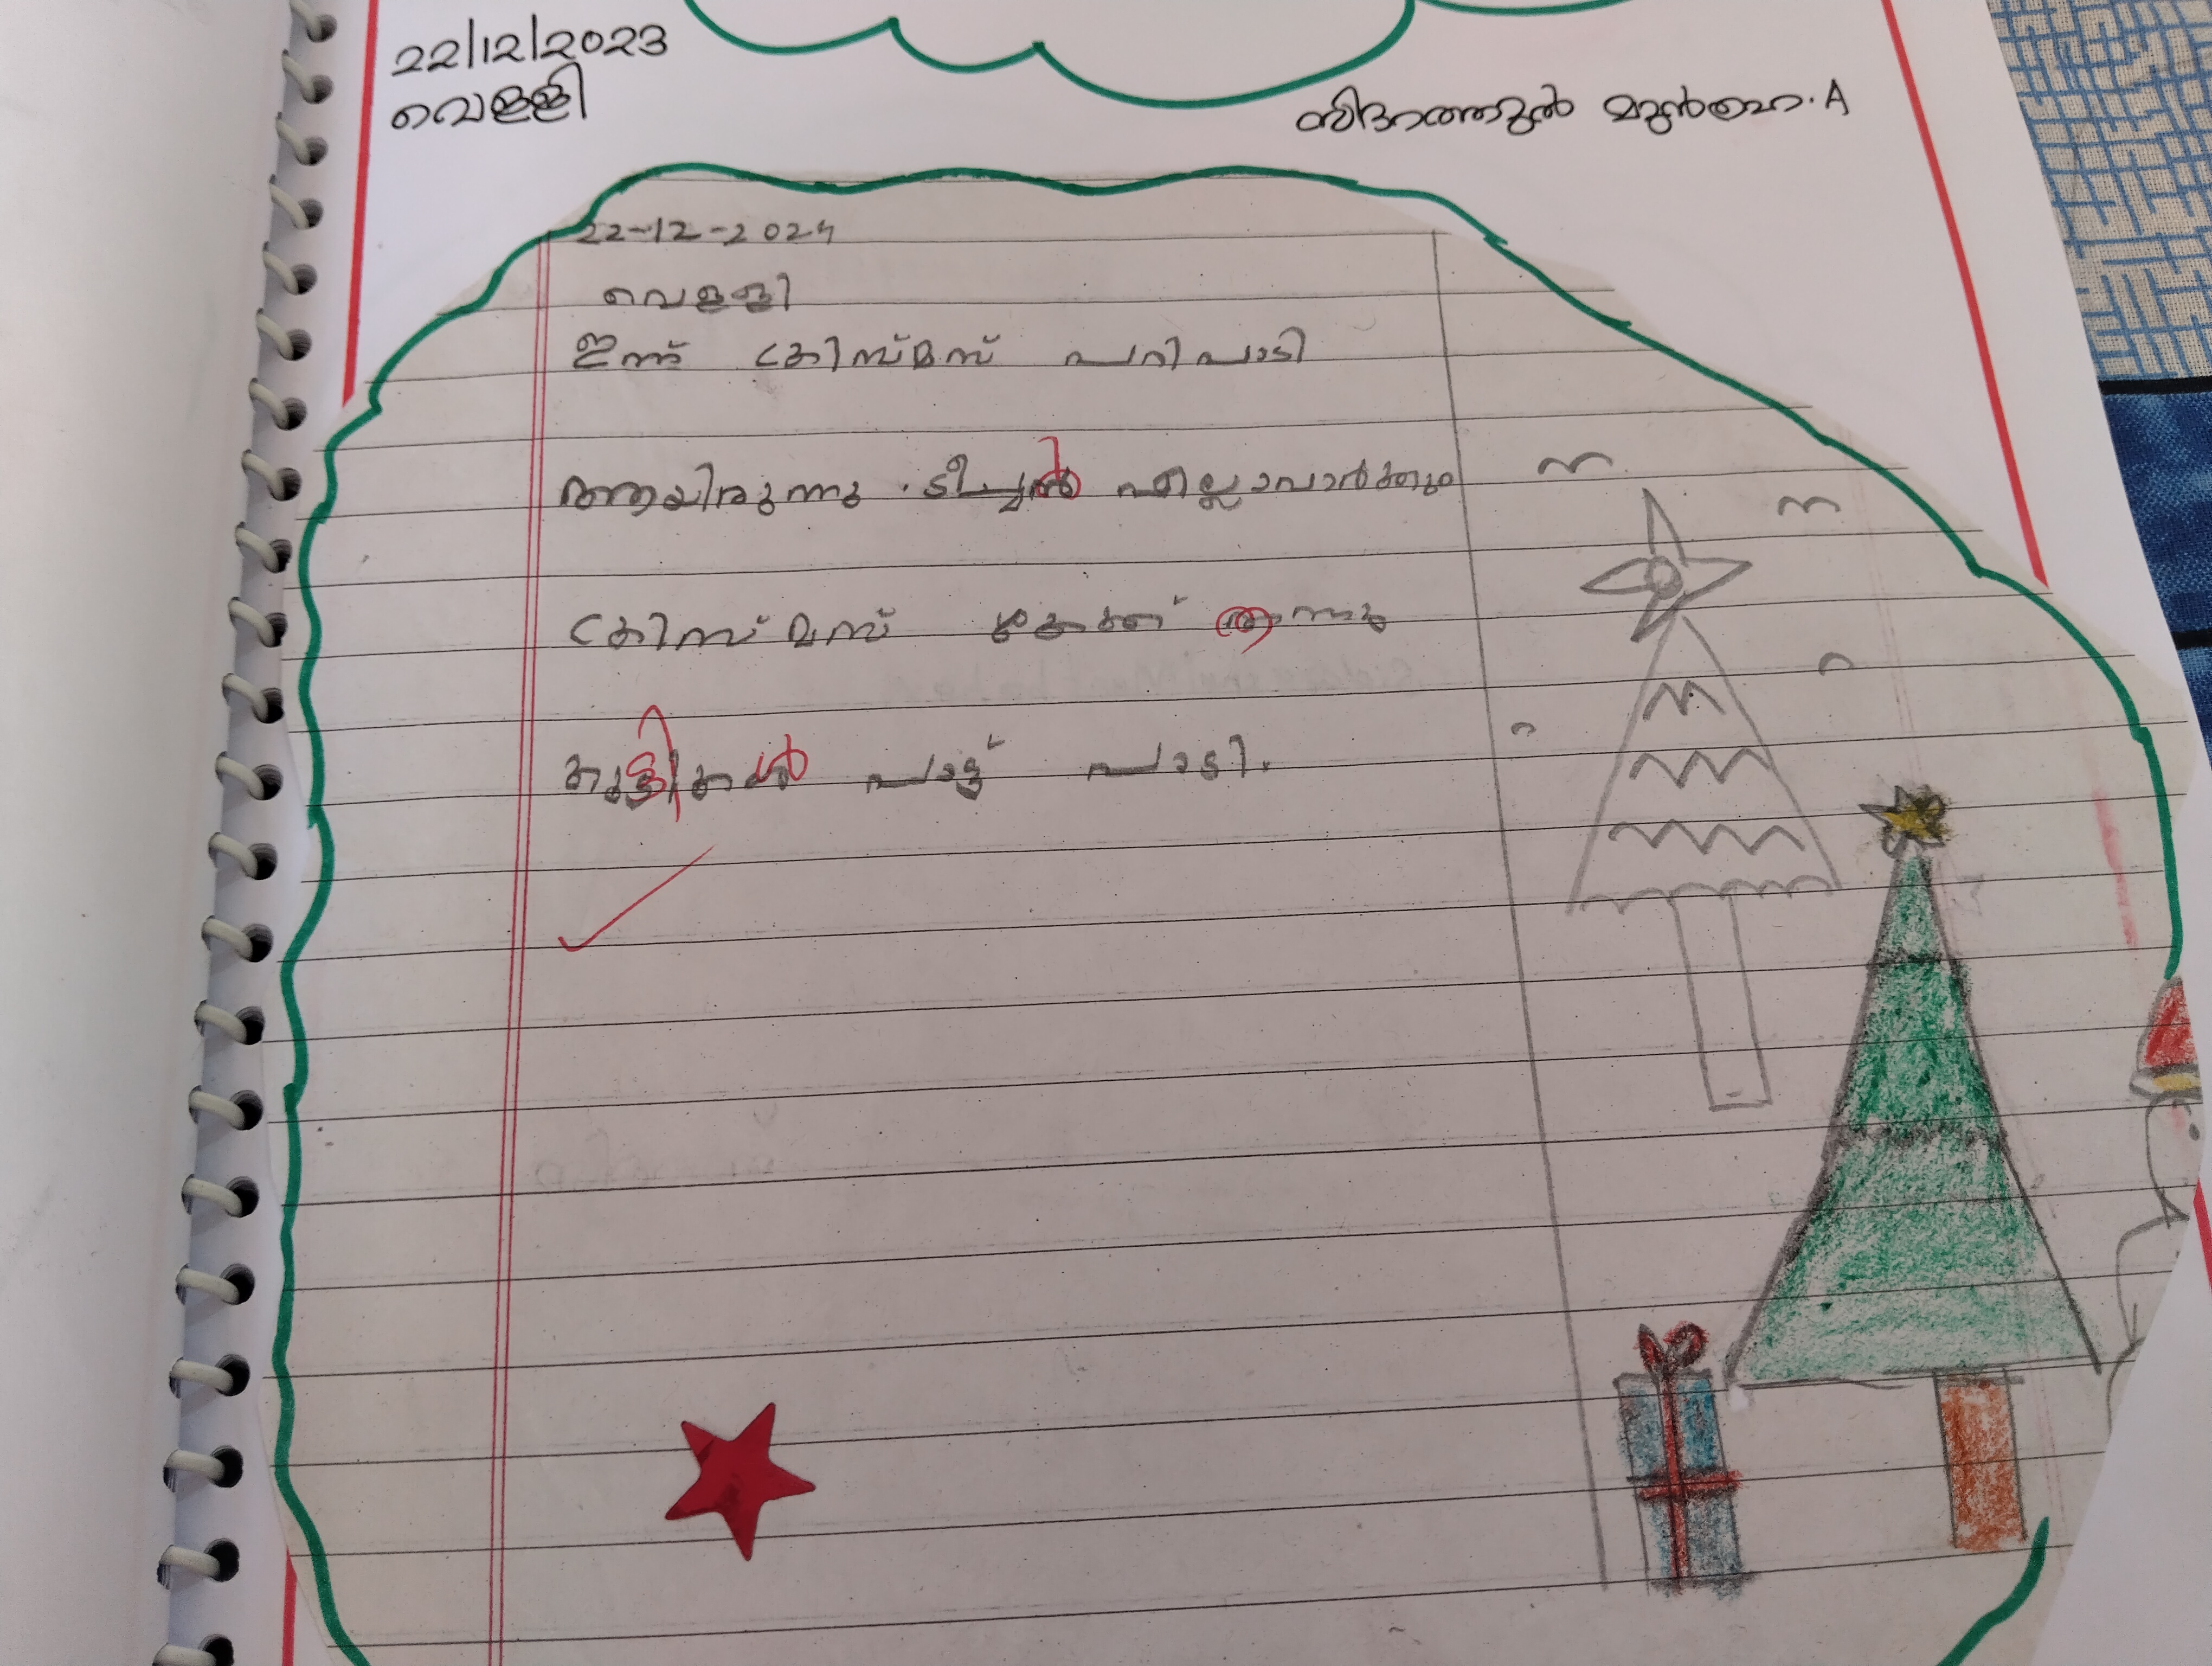 22/12/2023
വെള്ളി
സിദറത്തുൽ മുൻതഹ.A
22-12-2024
വെള്ളി
ഇന്ന് ക്രിസ്മസ് പരിപാടി
ആയിരുന്നു . ടീച്ചർ എല്ലാവാർക്കും
ക്രിസ്മസ് കേക്ക് തന്നു
കുട്ടികൾ പാട്ട് പാടി.